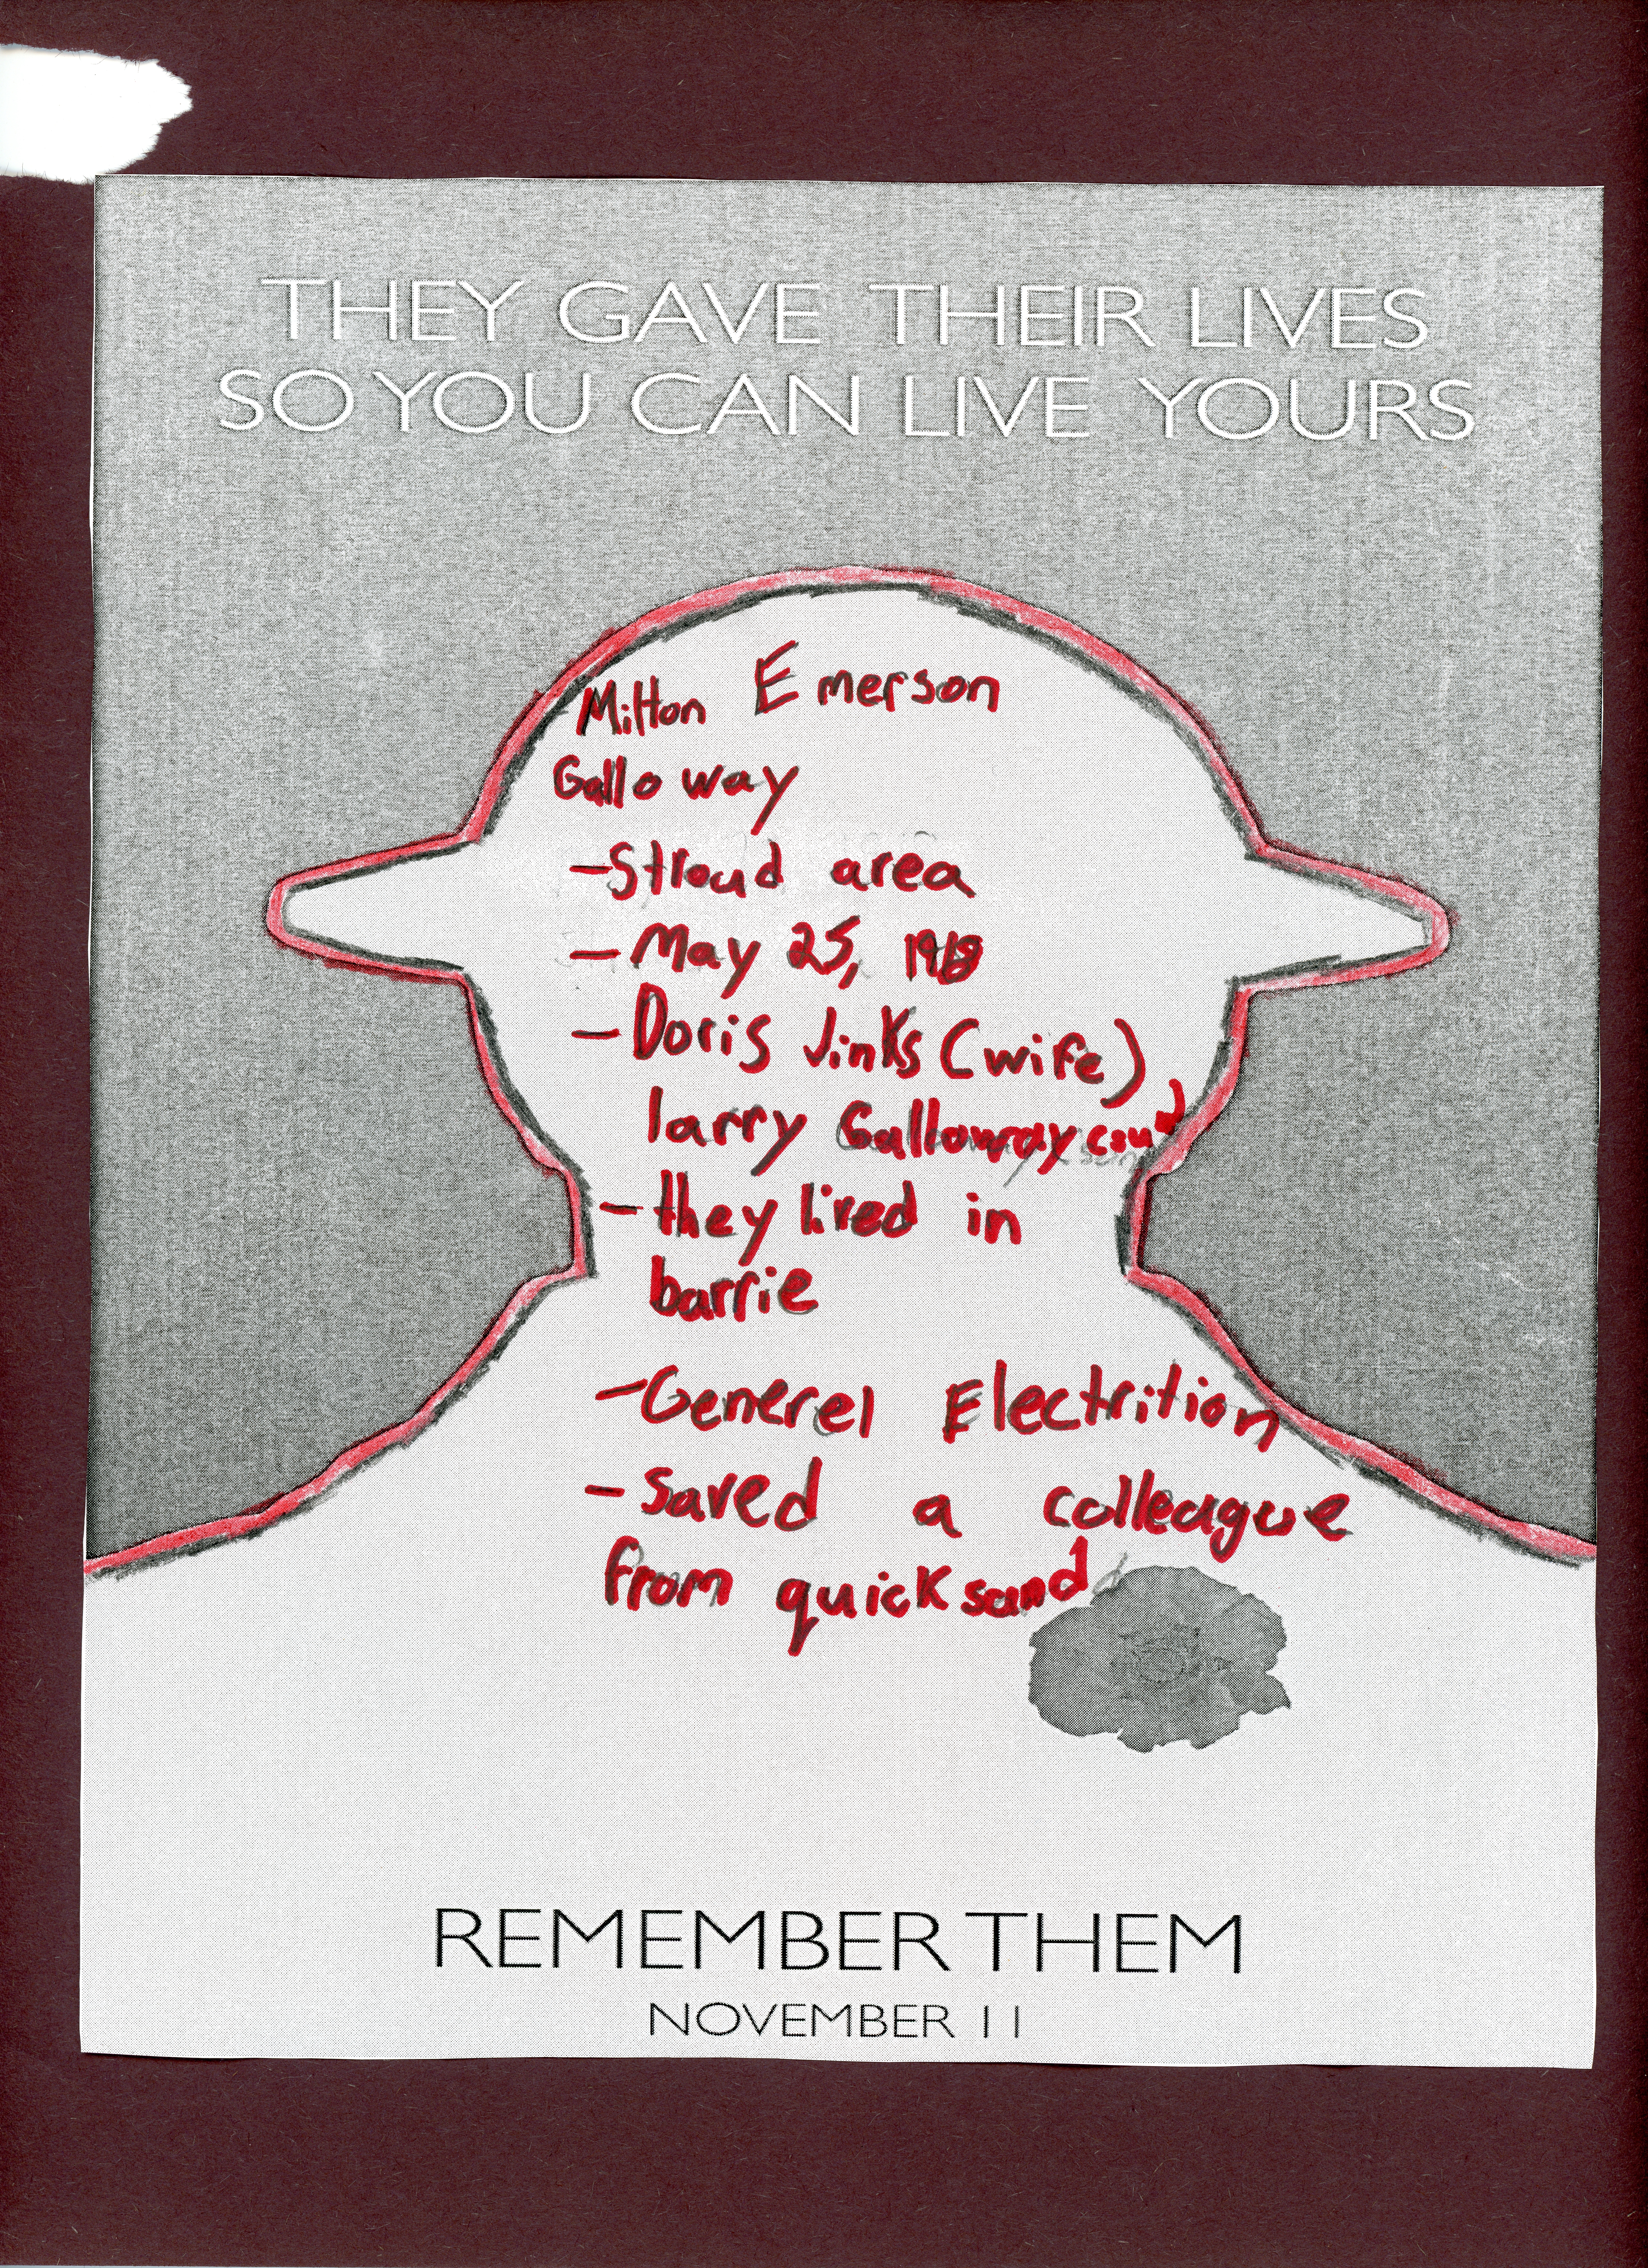 THEY GAVE THEIR LIVES
SO YOU CAN LIVE YOURS
Milton Emerson
Galloway
- Stroud area
- May 25, 1918
- Doris Jinks (wife)
larry Galloway
- they lived in
barrie
- Generel Electrition
- saved a colleague
from quicksand
REMEMBER THEM
NOVEMBER 11